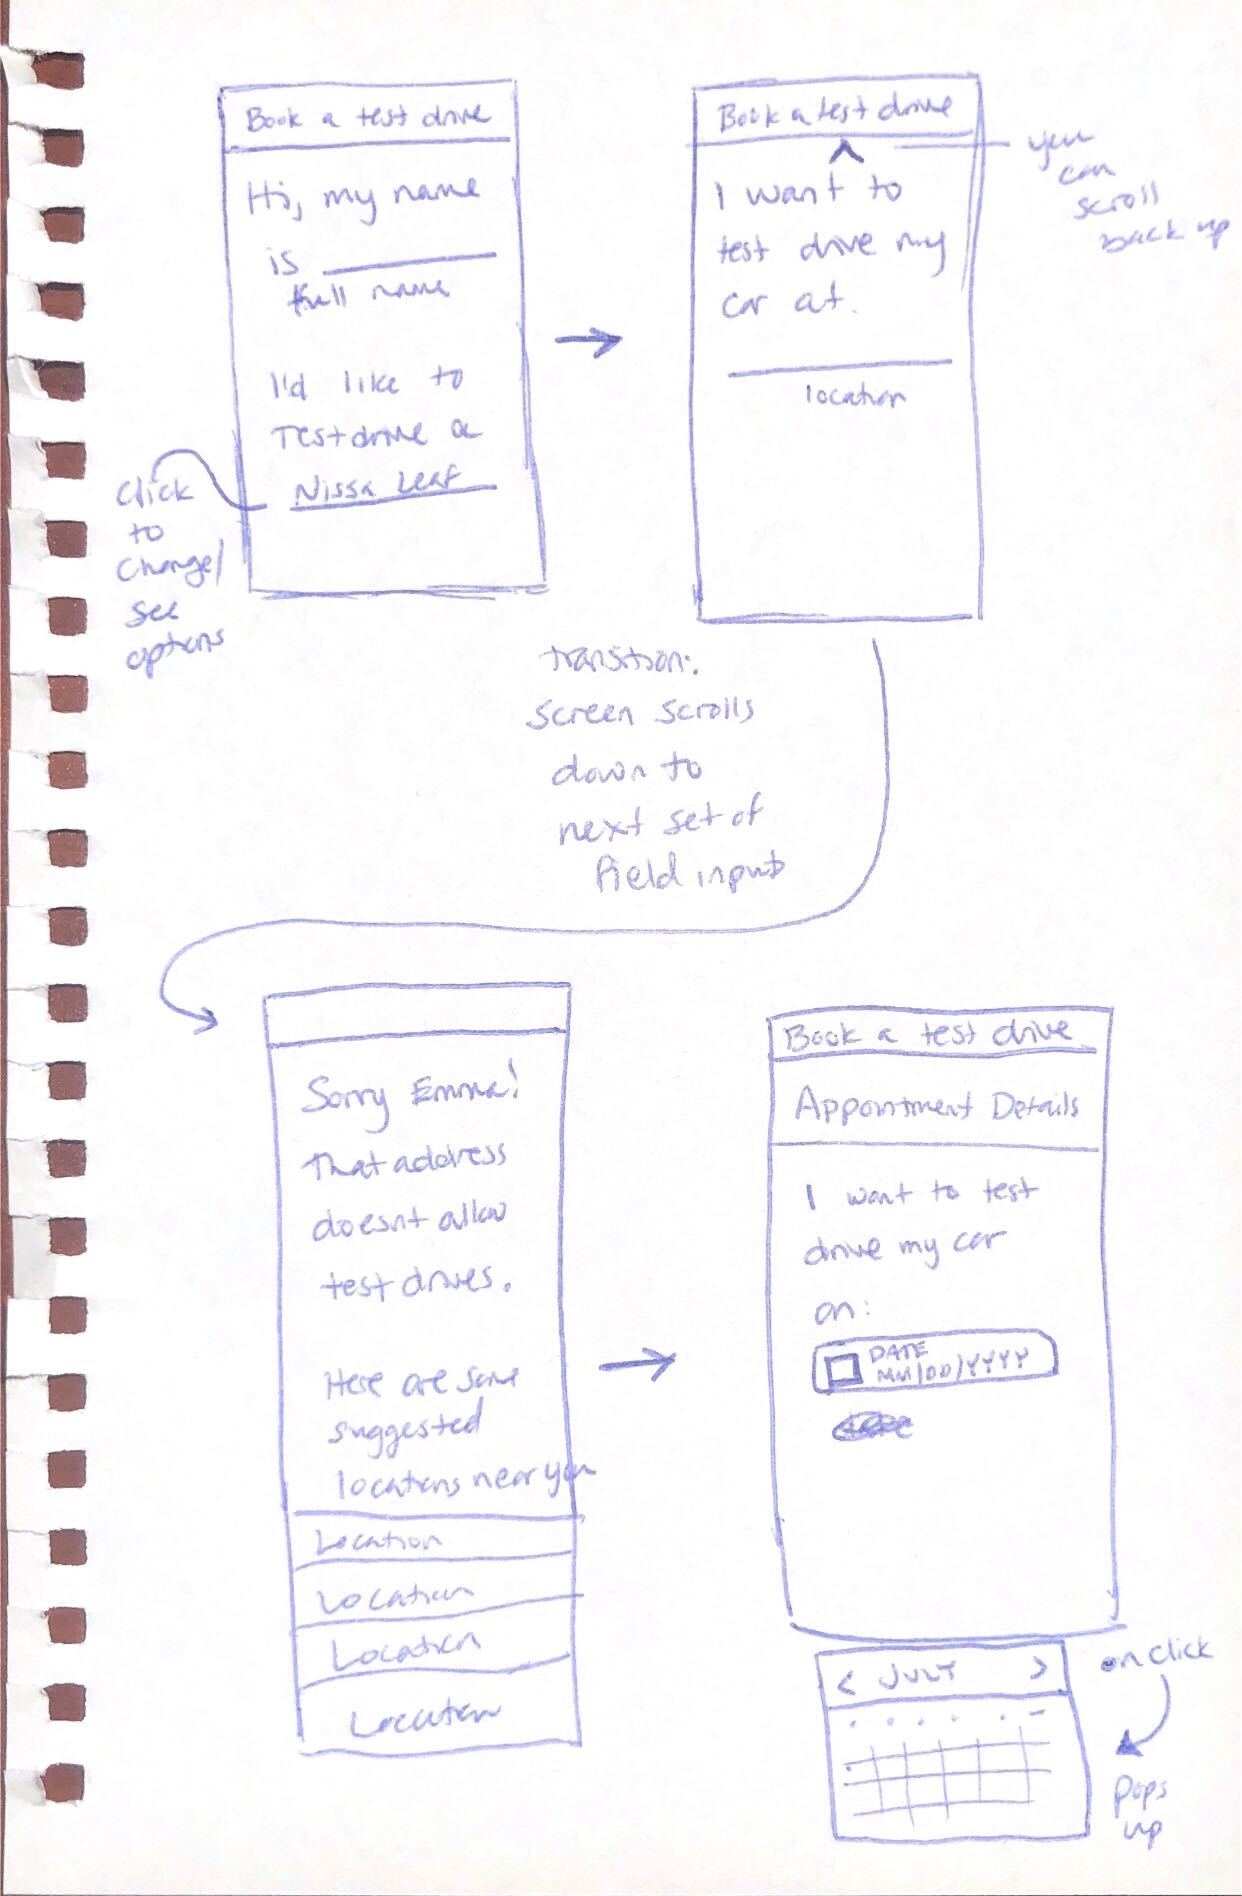 Book a test drive
Hi, my name
is
full name
I'd like to
Test drive a
Nissa Leaf
Click
to
change/
see
options
Book a test drive
I want to
test drive my
car at.
location
you
can
scroll
back up
transition:
screen scrolls
down to
next set of
field input
Sorry Emma!
That address
doesnt allow
test drives.
Here are some
suggested
locations near you
Location
Location
Location
Location
Book a test drive
Appointment Details
I want to test
drive my car
on:
DATE
MM/DD/YYYY
< JULY >
on click
pops
up